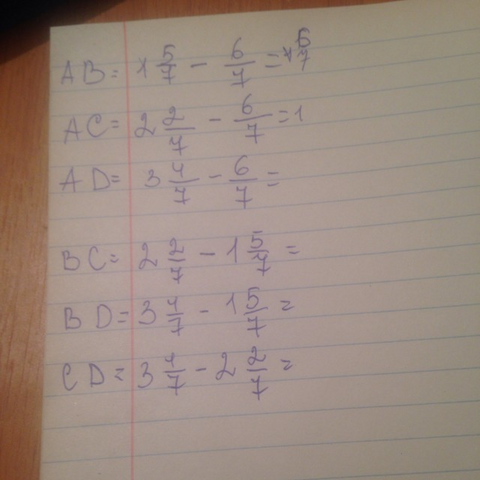 AB = 1 5/7 - 6/7 =
AC = 2 2/7 - 6/7 = 1
AD = 3 1/7 - 6/7 =
BC = 2 2/7 - 1 5/7 =
BD = 3 1/7 - 1 5/7 =
CD = 3 1/7 - 2 2/7 =